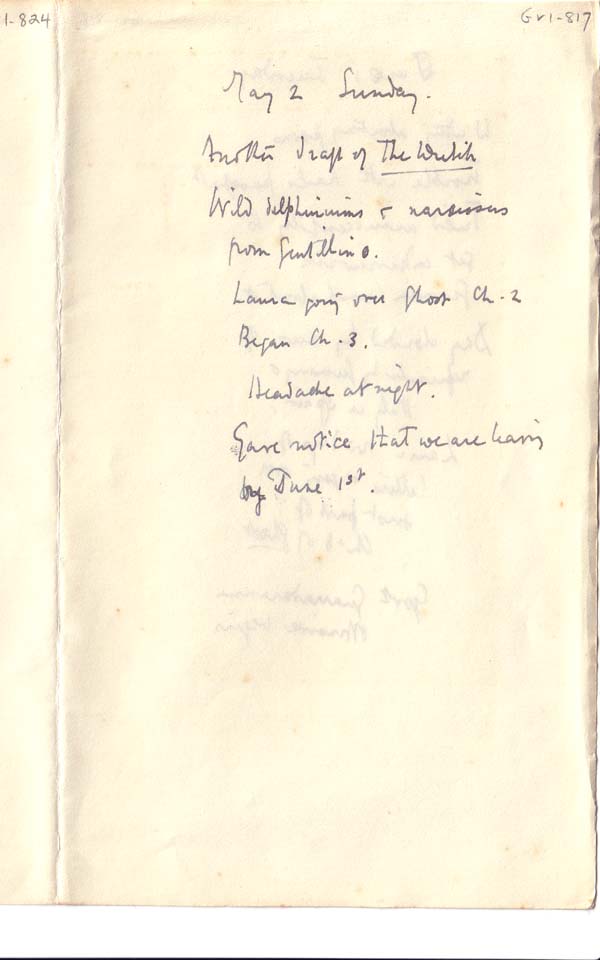 1-824
GV1-817
May 2 Sunday.
Another draft of The
Wild delphiniums & narcissus
from Gentillino.
Laura going over Ghost Ch. 2
Began Ch. 3.
Headache at night.
Gave notice that we are leaving
by June 1st.